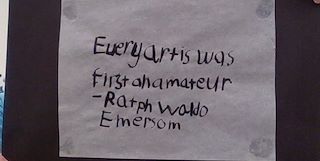 Every artis was
first an amateur
- Ralph Waldo
Emersom